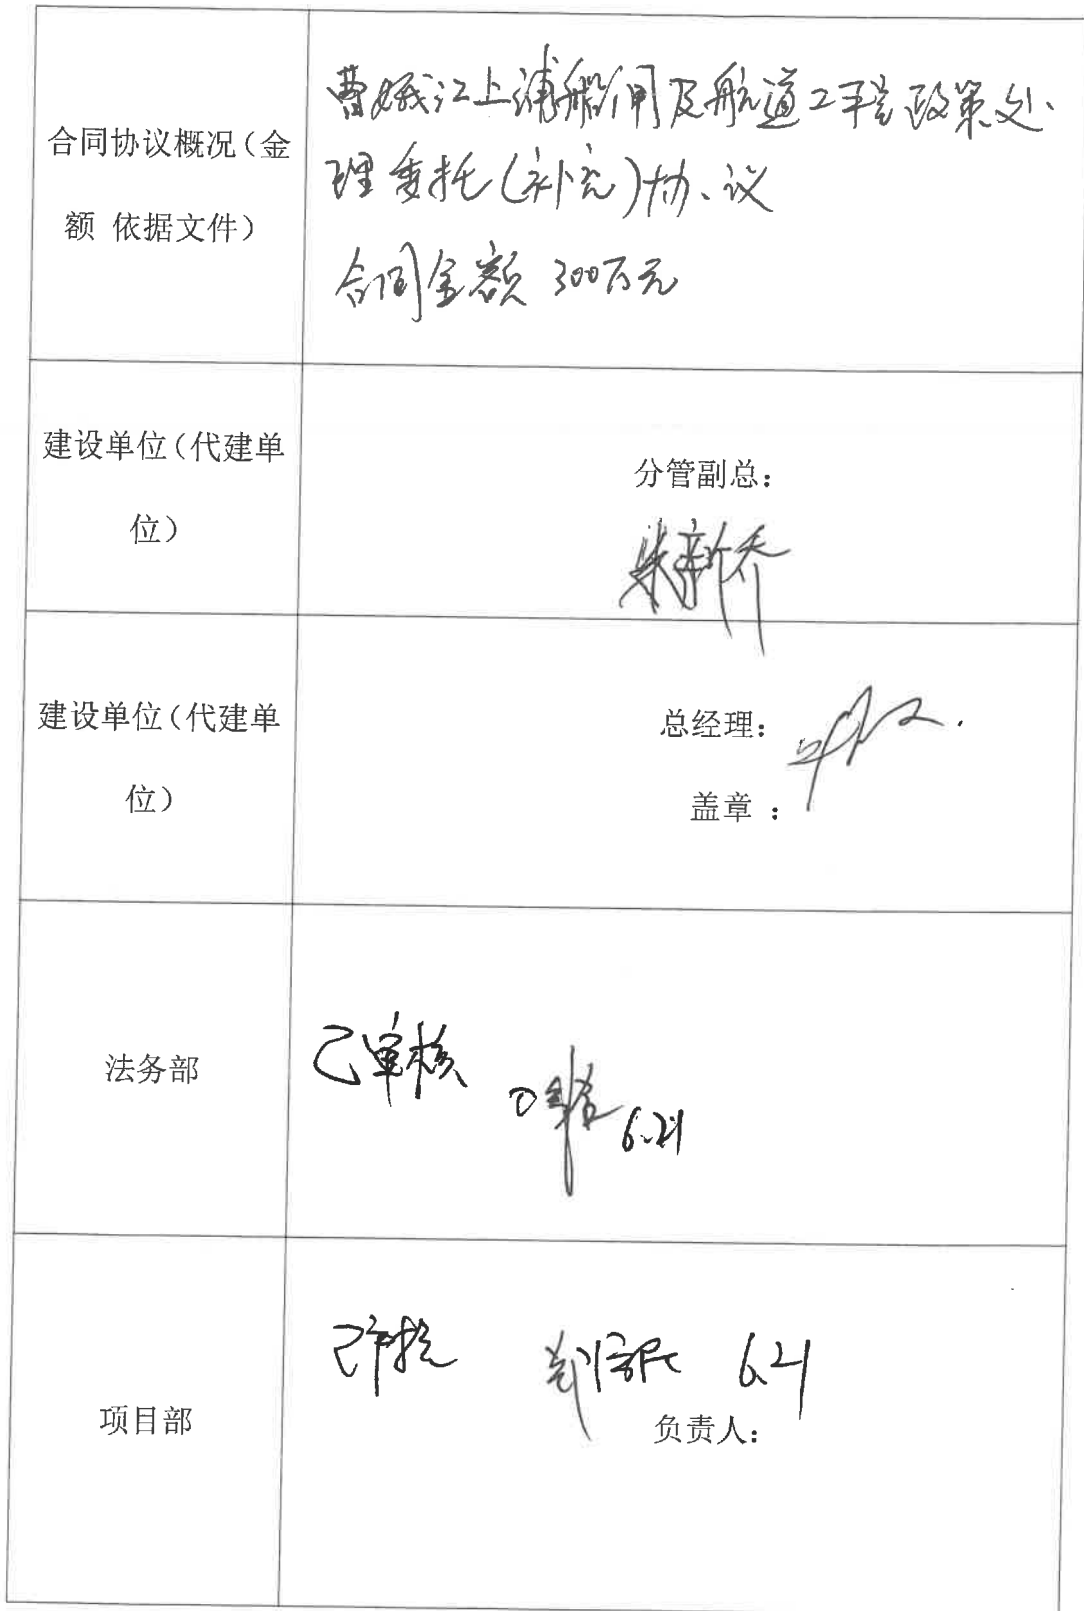 合同协议概况（金
额 依据文件）
曹娥江上浦船闸及航道工程政策处
理委托(补充)协议
合同金额 300万元
建设单位（代建单
位）
分管副总：
建设单位（代建单
位）
总经理：
盖章 ：
法务部
已审核
6.21
项目部
已审核
6.21
负责人：